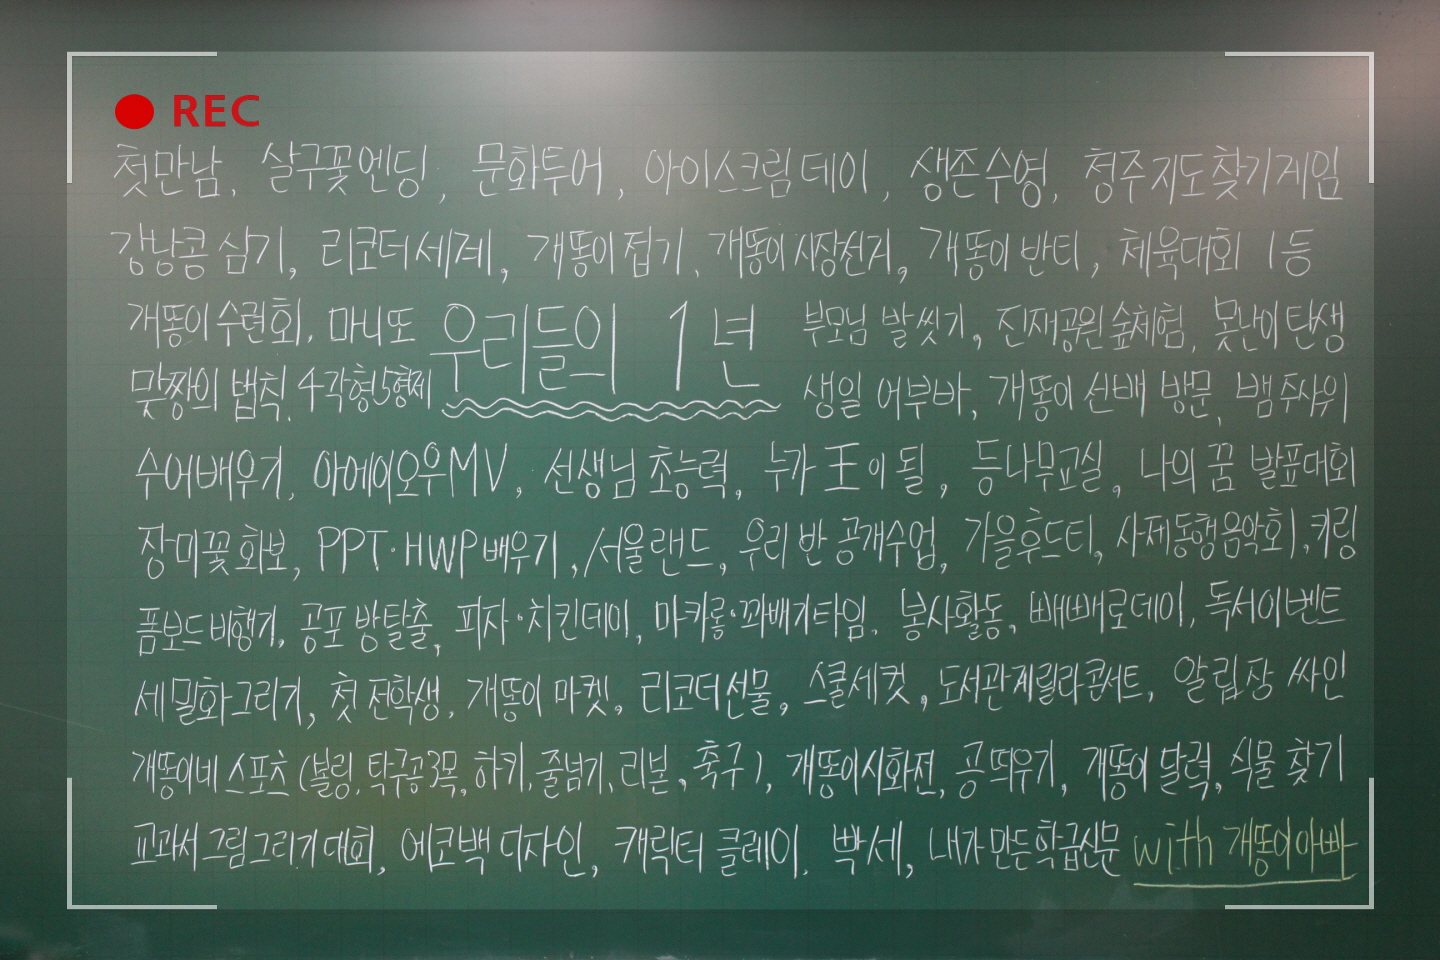 REC
첫만남, 살구꽃엔딩, 문화투어, 아이스크림데이, 생존수영, 청주지도찾기게임
강낭콩 심기, 리코더세계, 개똥이접기, 개똥이시장선거, 개똥이 반티, 체육대회 1등
개똥이수련회, 마니또 우리들의 1년 부모님 발씻기, 진재공원숲체험, 못난이탄생
맞짱의 법칙, 4각형5형제 생일 어부바, 개똥이 선배 방문, 뱀주사위
수어배우기, 아에이오우MV, 선생님 초능력, 누가 王이 될, 등나무교실, 나의 꿈 발표대회
장미꽃 화보, PPT·HWP배우기, 서울랜드, 우리반 공개수업, 가을후드티, 사제동행음악회, 키링
폼보드비행기, 공포 방탈출, 피자·치킨데이, 마카롱·꽈배기타임, 봉사활동, 빼빼로데이, 독서이벤트
세밀화그리기, 첫 전학생, 개똥이 마켓, 리코더선물, 스쿨세컷, 도서관게릴라콘서트, 알림장 싸인
개똥이네 스포츠 (볼링, 탁구공3목, 하키, 줄넘기, 리본, 축구), 개똥이시화전, 공 띄우기, 개똥이 달력, 식물 찾기
교과서 그림그리기대회, 에코백 디자인, 캐릭터 클레이, 빡세, 내가 만든학급신문 with 개똥이아빠